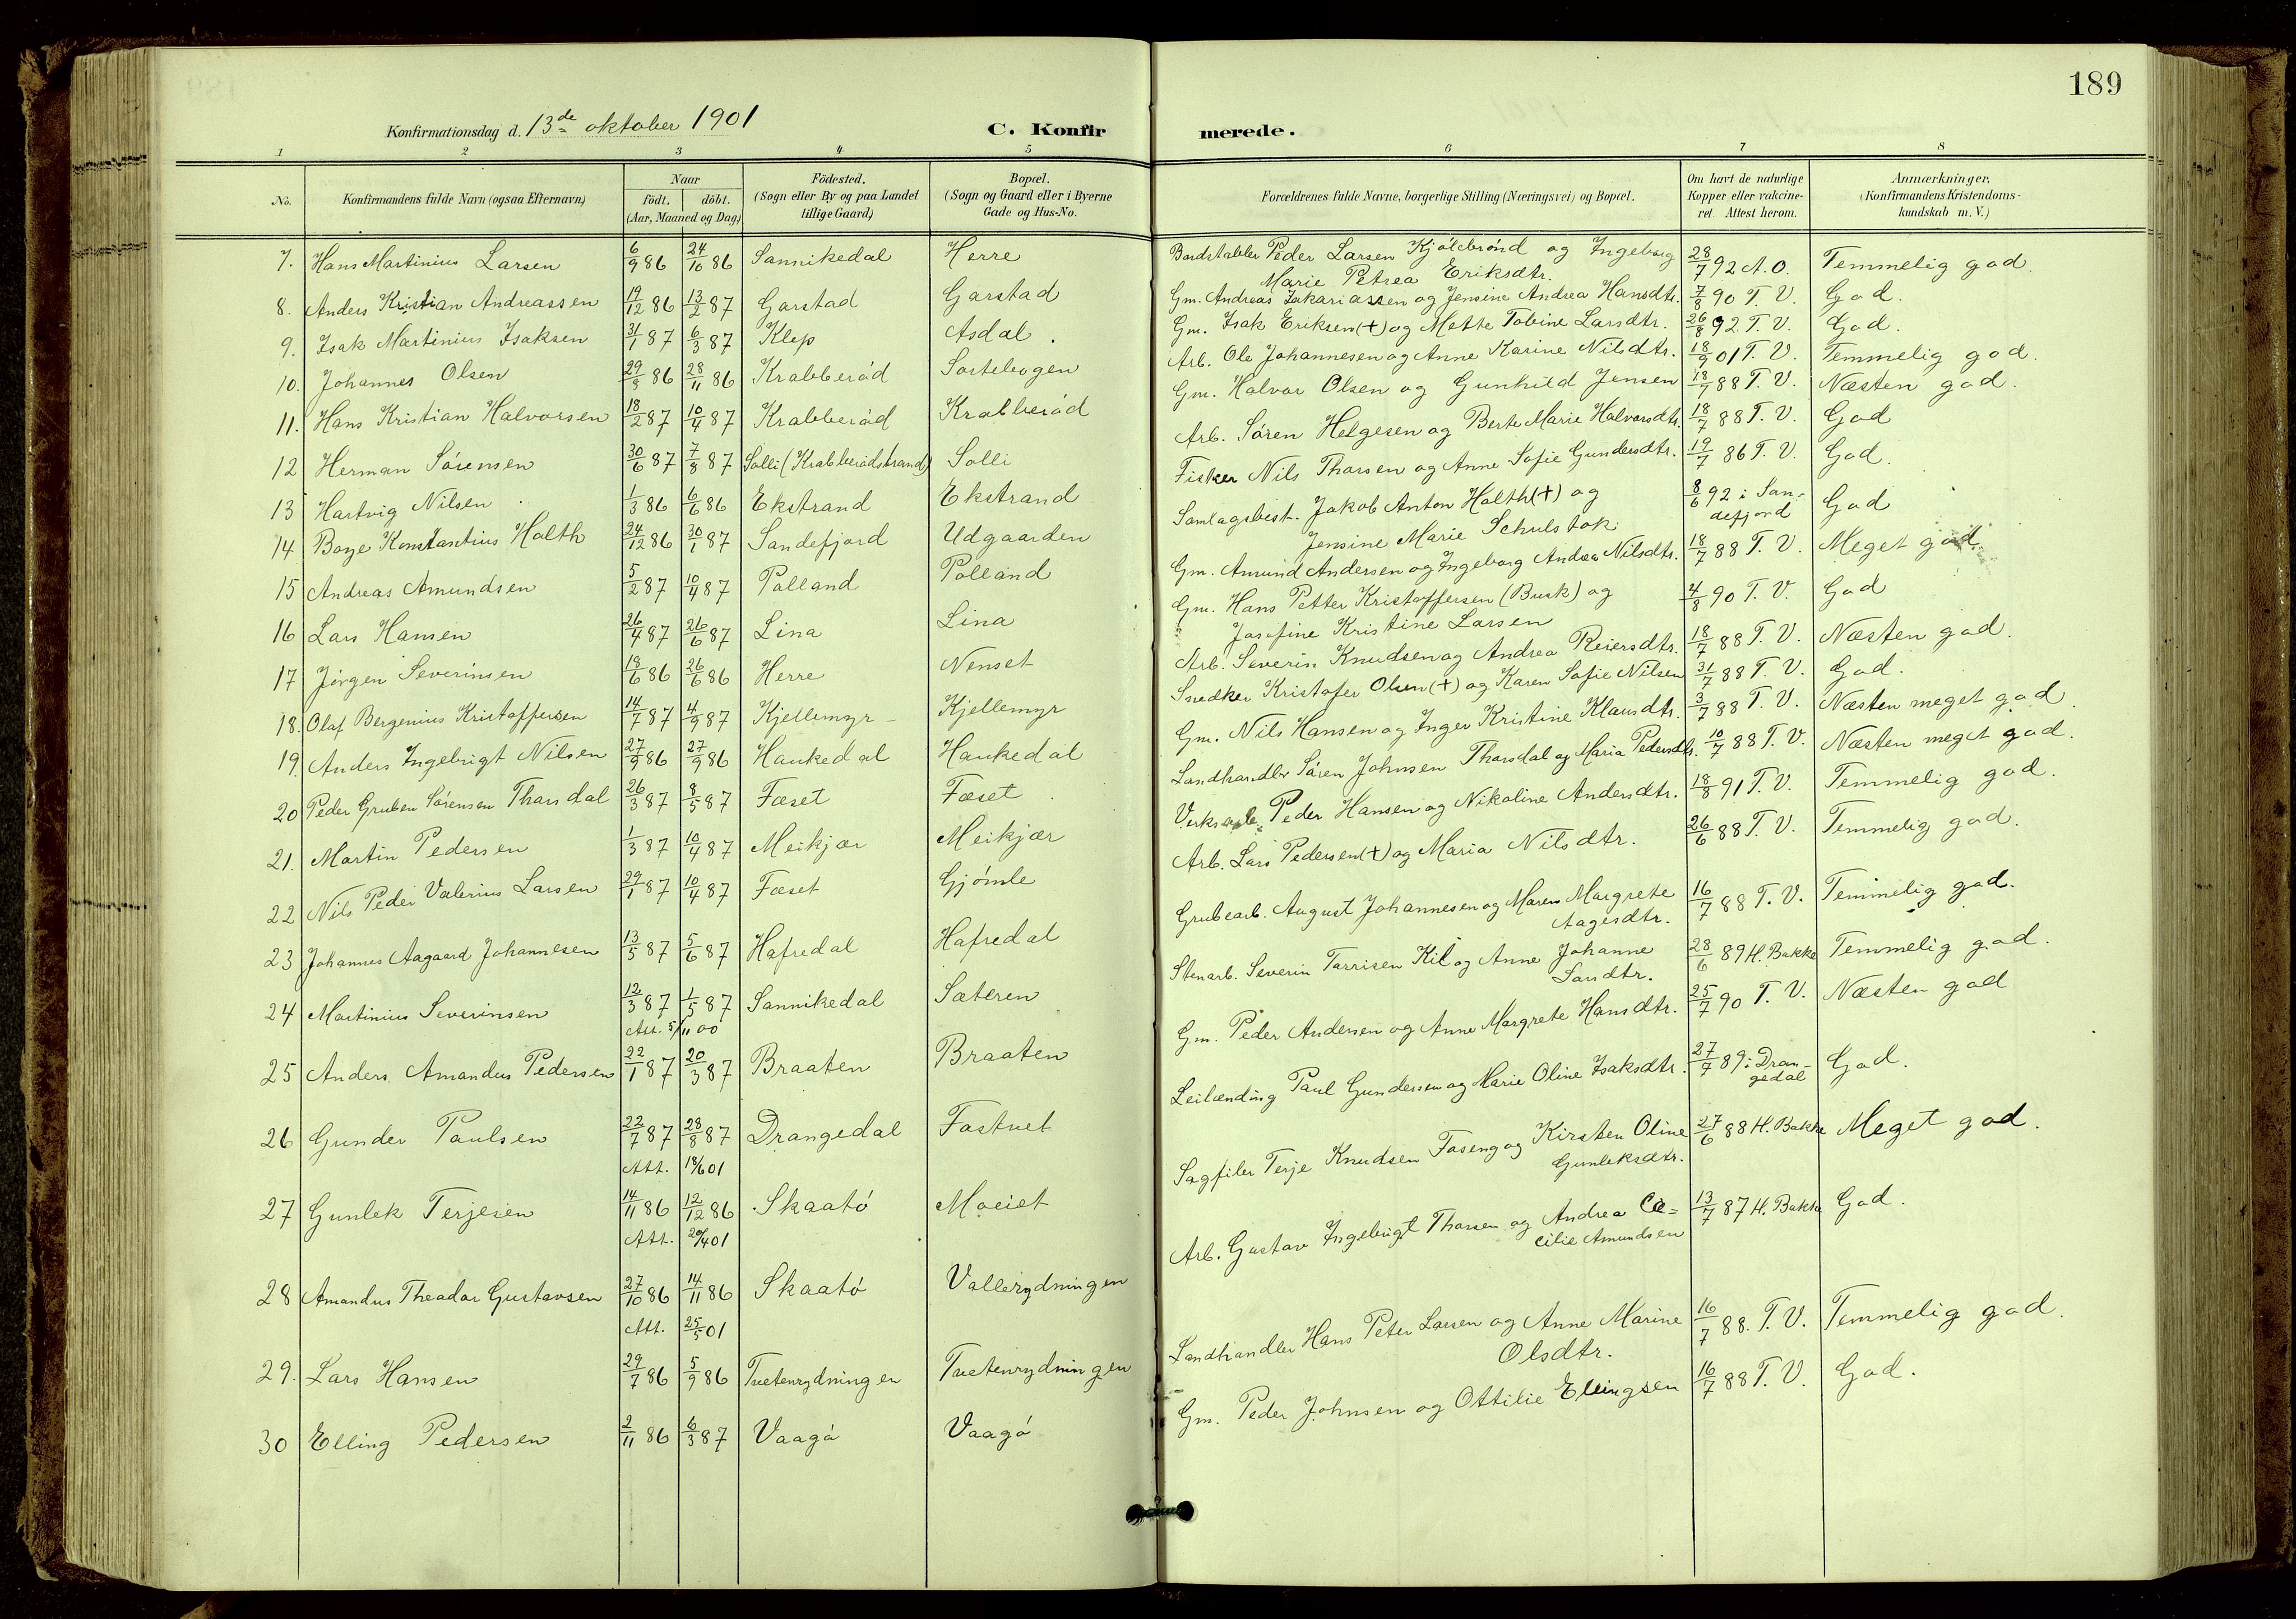 189
Konfirmationsdag d. 13de oktober 1901
C. Konfir merede.
1 2 3 4 5 6 7 8
No. Konfirmandens fulde Navn (ogsaa Efternavn) Naar födt. döbt. (Aar, Maaned og Dag) Födested. (Sogn eller By og paa Landet tillige Gaard) Bopæl. (Sogn og Gaard eller i Byerne Gade og Hus-No. Forældrenes fulde Navne, borgerlige Stilling (Næringsvei) og Bopæl. Om havt de naturlige Kopper eller vakcineret Attest herom. Anmærkninger. (Konfirmandens Kristendomskundskab m. V.)
7. Hans Martinius Larsen 6/9 86 24/10 86 Sannikedal Herre Bordstabler Peder Larsen Kjölebrönd og Ingeborg 28/7 92 A. O. Temmelig god.
Marie Petrea Eriksdtr.
8. Anders Kristian Andreassen 19/12 86 13/2 87 Garstad Garstad Gm. Andreas Zakariassen og Jensine Andrea Hansdtr. 7/8 90 T. V. God.
9. Isak Martinius Isaksen 31/1 87 6/3 87 Klep Asdal. Gm. Isak Eriksen (+) og Mette Tobine Larsdtr. 26/8 92 T. V. God.
10. Johannes Olsen 29/9 86 28/11 86 Krabberöd Sortebogen Arb. Ole Johannesen og Anne Karine Nilsdtr. 18/9 01 T. V. Temmelig god.
11. Hans Kristian Halvorsen 18/2 87 10/4 87 Krabberöd Krabberöd Gm. Halvor Olsen og Gunhild Jensen 18/7 88 T. V. Næsten god.
12 Herman Sörensen 30/6 87 7/8 87 Solli (Krabberödstrand) Solli Arb. Sören Helgesen og Berte Marie Halvorsdtr. 18/7 88 T. V. God
13 Hartvig Nilsen 1/3 86 6/6 86 Ekstrand Ekstrand Fisker Nils Thorsen og Anne Sofie Gundersdtr. 19/7 86 T. V. God.
14 Boye Konstantius Holth 24/12 86 30/1 87 Sandefjord Udgaarden Samlagsbest. Jakob Anton Holth (+) og 8/6 92 i San- God
Jensine Marie Schulstok defjord
15 Andreas Amundsen 5/2 87 10/4 87 Polland Polland Gm. Amund Andersen og Ingeborg Andrea Nilsdtr. 18/7 88 T. V. Meget god.
16 Lars Hansen 26/4 87 26/6 87 Lina Lina Gm. Hans Petter Kristoffersen (Busk) og 4/8 90 T. V. God
Josefine Kristine Larsen
17 Jörgen Severinsen 18/6 86 26/6 86 Herre Nenset Arb. Severin Knudsen og Andrea Reiersdtr. 18/7 88 T. V. Næsten god.
18. Olaf Bergenius Kristoffersen 14/7 87 4/9 87 Kjellemyr Kjellemyr Snedker Kristofer Olsen (+) og Karen Sofie Nilsen 31/7 88 T. V. God.
19. Anders Ingebrigt Nilsen 27/9 86 27/9 86 Haukedal Haukedal Gm. Nils Hansen og Inger Kristine Klausdtr. 3/7 88 T. V. Næsten meget god.
20 Peder Gruben Sörensen Thorsdal 26/3 87 8/5 87 Fæset Fæset Landhandler Sören Johnsen Thorsdal og Maria Pedersdtr. 10/7 88 T. V. Næsten meget god.
21. Martin Pedersen 1/3 87 10/4 87 Meikjær Meikjær Verksarb. Peder Hansen og Nikoline Andersdtr. 18/8 91 T. V. Temmelig god.
22 Nils Peder Valerius Larsen 29/1 87 10/4 87 Fæset Gjömle Arb. Lars Pedersen (+) og Maria Nilsdtr. 26/6 88 T. V. Temmelig god.
23 Johannes Aagaard Johannesen 13/5 87 5/6 87 Hafredal Hafredal Grubearb. August Johannesen og Maren Margrete 16/7 88 T. V. Temmelig god.
Aagesdtr.
24 Martinius Severinsen 12/3 87 1/5 87 Sannikedal Sæteren Stenarb. Severin Torrisen Kil og Anne Johanne 28/6 89 H. Bakke Temmelig god.
Att. 5/11 00
25 Anders Amandus Pedersen 22/1 87 20/3 87 Braaten Braaten Gm. Peder Andersen og Anne Margrete Hansdtr. 25/7 90 T. V. Næsten god
26 Gunder Paulsen 22/7 87 28/8 87 Drangedal Fostvet Leilænding Paul Gundersen og Marie Oline Isaksdtr. 27/9 89 i Dran- God.
Att. 18/6 01 gedal
27 Gunlek Terjesen 14/11 86 12/12 86 Skaatö Moeiet Sagfiler Terje Knudsen Foseng og Kirsten Oline 27/6 88 H. Bakke Meget god.
Att. 20/4 01 Gunleksdtr.
28 Amandus Theodor Gustavsen 27/10 86 14/11 86 Skaatö Vallerydningen Arb. Gustav Ingebrigt Thorsen og Andrea Ce- 13/7 87 H. Bakke God.
Att. 25/5 01 cilie Amundsen
29. Lars Hansen 29/7 86 5/9 86 Tvetenrydningen Tvetenrydningen Landhandler Hans Peter Larsen og Anne Marine 16/7 88. T. V. Temmelig god.
Olsdtr.
30 Elling Pedersen 2/11 86 6/3 87 Vaagö Vaagö Gm. Peder Johnsen og Ottilie Ellingsen 16/7 88 T. V. God.